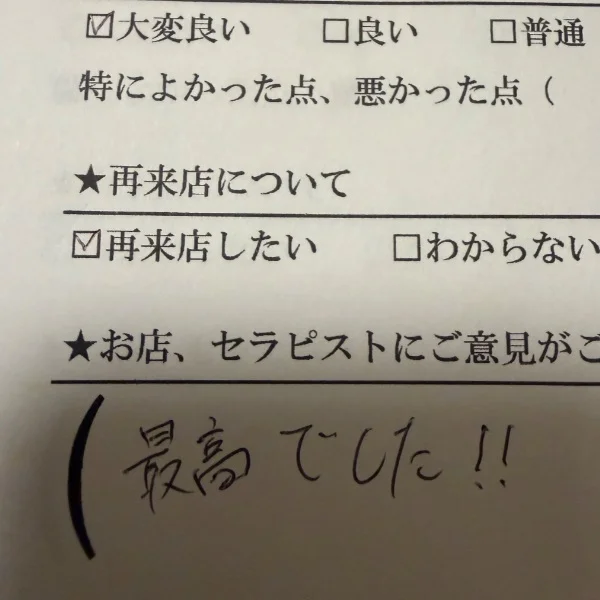 ☑大変良い ☐良い ☐普通
特によかった点、悪かった点（
★再来店について
☑再来店したい ☐わからない
★お店、セラピストにご意見がご
（最高でした!!